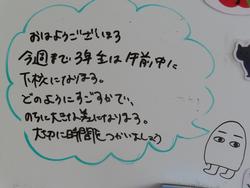 おはようございます
今週まで3年生は午前中に
下校になります。
どのようにすごすかで、
のちに大きな差になります。
大切に時間をつかいましょう